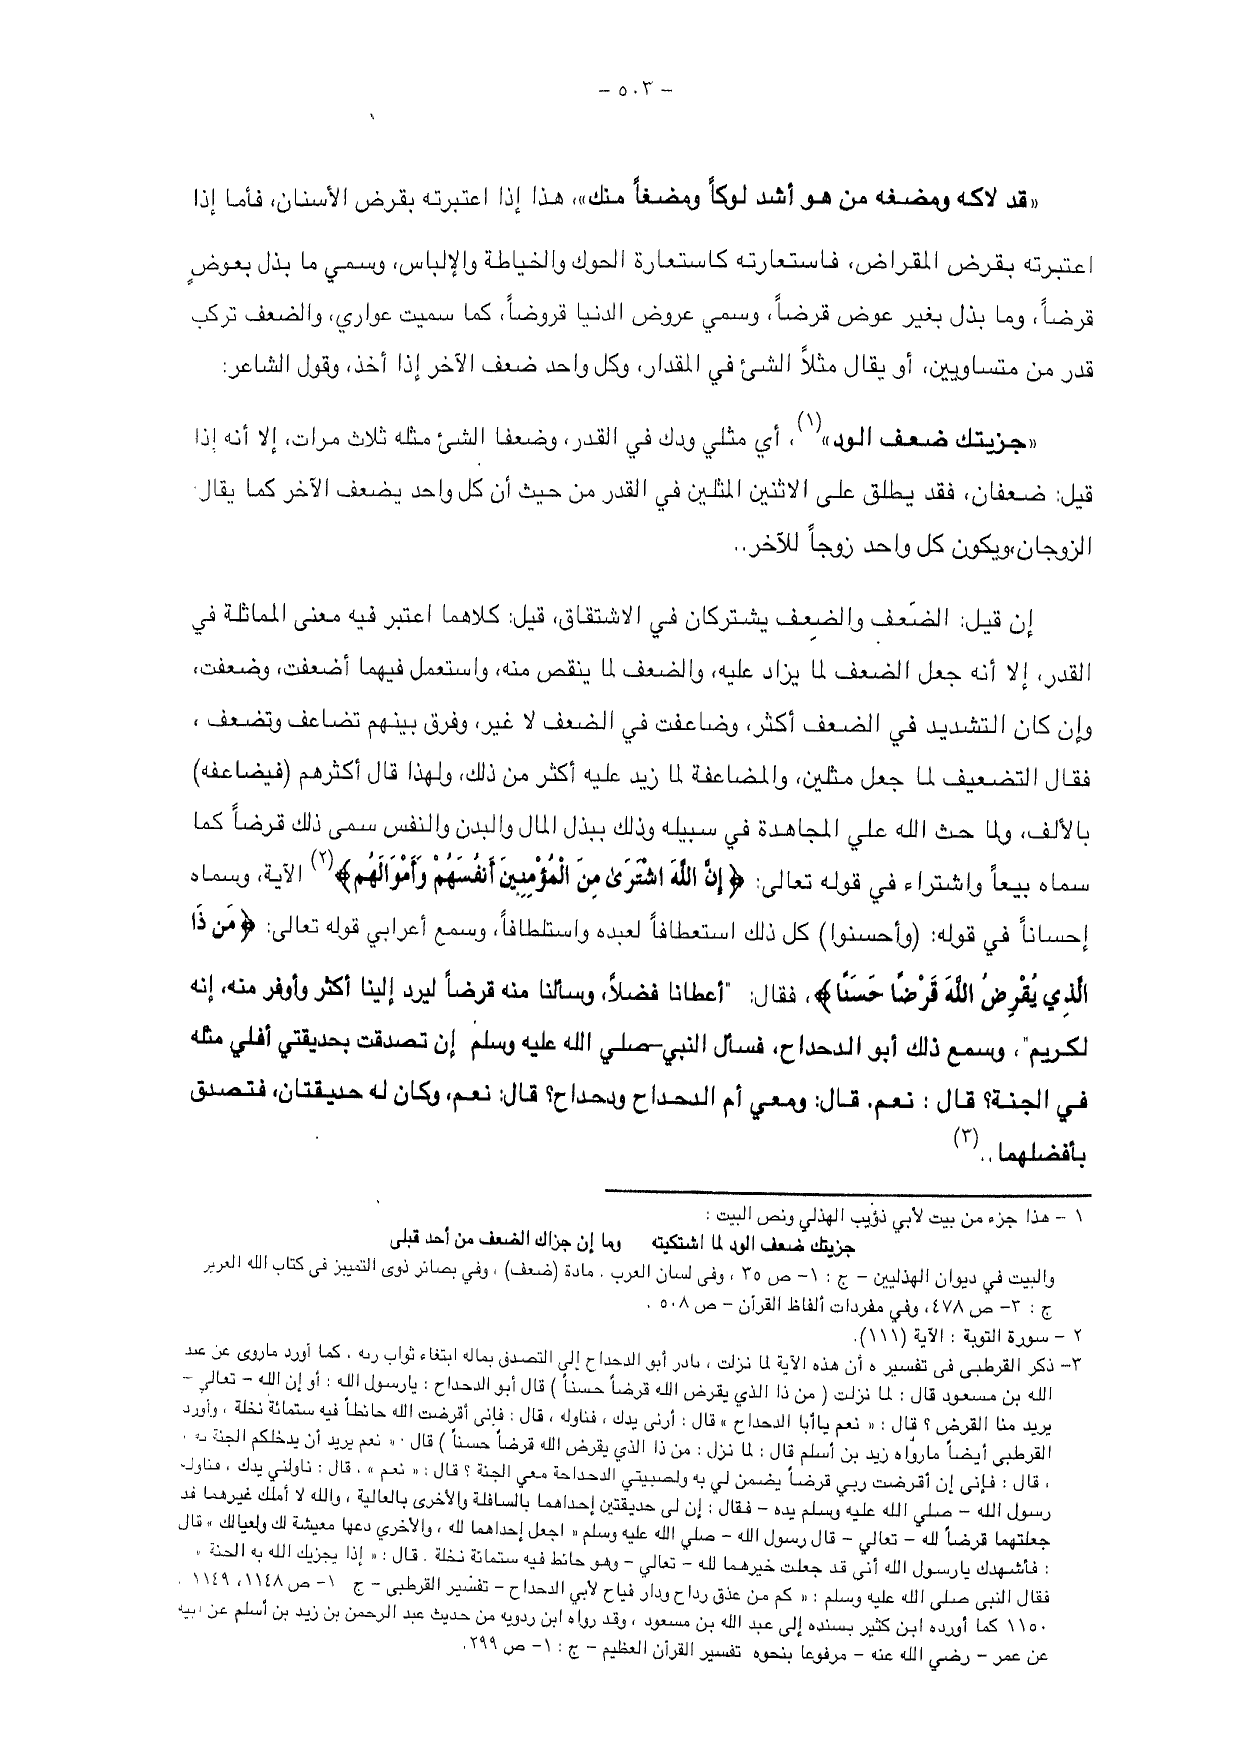 - ٥٠٣ -
«قد لاكه ومضغه من هو أشد لوكاً ومضغاً منك»، هذا إذا اعتبرته بقرض الأسنان، فأما إذا
اعتبرته بقرض المقراض، فاستعارته كاستعارة الحوك والخياطة والإلباس، وسمي ما بذل بعوضٍ
قرضاً، وما بذل بغير عوض قرضاً، وسمي عروض الدنيا قروضاً، كما سميت عواري، والضعف تركب
قدر من متساويين، أو يقال مثلاً الشئ في المقدار، وكل واحد ضعف الآخر إذا أخذ، وقول الشاعر:
«جزيتك ضعف الود»(١)، أي مثلي ودك في القدر، وضعفا الشئ مثله ثلاث مرات، إلا أنه إذا
قيل: ضعفان، فقد يطلق على الاثنين المثلين في القدر من حيث أن كل واحد يضعف الآخر كما يقال
الزوجان،ويكون كل واحد زوجاً للآخر..
إن قيل: الضّعف والضعف يشتركان في الاشتقاق، قيل: كلاهما اعتبر فيه معنى المماثلة في
القدر، إلا أنه جعل الضعف لما يزاد عليه، والضعف لما ينقص منه، واستعمل فيهما أضعفت، وضعفت،
وإن كان التشديد في الضعف أكثر، وضاعفت في الضعف لا غير، وفرق بينهم تضاعف وتضعف ،
فقال التضعيف لما جعل مثلين، والمضاعفة لما زيد عليه أكثر من ذلك، ولهذا قال أكثرهم (فيضاعفه)
بالألف، ولما حث الله على المجاهدة في سبيله وذلك ببذل المال والبدن والنفس سمى ذلك قرضاً كما
سماه بيعاً واشتراء في قوله تعالى: ﴿إِنَّ اللَّهَ اشْتَرَىٰ مِنَ الْمُؤْمِنِينَ أَنفُسَهُمْ وَأَمْوَالَهُم﴾(٢) الآية، وسماه
إحساناً في قوله: (وأحسنوا) كل ذلك استعطافاً لعبده واستلطافاً، وسمع أعرابي قوله تعالى: ﴿مَن ذَا
الَّذِي يُقْرِضُ اللَّهَ قَرْضًا حَسَنًا﴾، فقال: "أعطانا فضلاً، وسألنا منه قرضاً ليرد إلينا أكثر وأوفر منه، إنه
لكريم"، وسمع ذلك أبو الدحداح، فسأل النبي-صلي الله عليه وسلم إن تصدقت بحديقتي أفلي مثله
في الجنة؟ قال : نعم. قال: ومعي أم الدحداح ودحداح؟ قال: نعم، وكان له حديقتان، فتصدق
بأفضلهما ..(٣)
١ - هذا جزء من بيت لأبي ذؤيب الهذلي ونص البيت :
جزيتك ضعف الود لما اشتكيته وما إن جزاك الضعف من أحد قبلى
والبيت في ديوان الهذليين - ج : ١- ص ٣٥ ، وفى لسان العرب . مادة (ضعف) ، وفي بصائر ذوى التمييز فى كتاب الله العزيز
ج : ٣- ص ٤٧٨، وفي مفردات ألفاظ القرآن - ص ٥٠٨ .
٢ - سورة التوبة : الآية (١١١).
٣- ذكر القرطبى فى تفسير ه أن هذه الآية لما نزلت ، بادر أبو الدحداح إلى التصدق بماله ابتغاء ثواب ربه . كما أورد ماروى عن عبد
الله بن مسعود قال : لما نزلت ( من ذا الذي يقرض الله قرضاً حسناً ) قال أبو الدحداح : يارسول الله : أو إن الله - تعالي -
يريد منا القرض ؟ قال : « نعم ياأبا الدحداح » قال : أرنى يدك ، فناوله ، قال : فإنى أقرضت الله حائطاً فيه ستمائة نخلة ، وأورد
القرطبى أيضاً مارواه زيد بن أسلم قال : لما نزل : من ذا الذي يقرض الله قرضاً حسناً ) قال : « نعم يريد أن يدخلكم الجنة به .
، قال : فإنى إن أقرضت ربي قرضاً يضمن لي به ولصبيتي الدحداحة معي الجنة ؟ قال : « نعم » . قال : ناولني يدك ، فناوله
رسول الله - صلى الله عليه وسلم يده - فقال : إن لى حديقتين إحداهما بالسافلة والأخرى بالعالية ، والله لا أملك غيرهما قد
جعلتهما قرضاً لله - تعالي - قال رسول الله - صلى الله عليه وسلم « اجعل إحداهما لله ، والأخري دعها معيشة لك ولعيالك » قال
: فأشهدك يارسول الله أنى قد جعلت خيرهما لله - تعالي - وهو حائط فيه ستمائة نخلة . قال : « إذا يجزيك الله به الجنة »
فقال النبى صلى الله عليه وسلم : « كم من عذق رداح ودار فياح لأبي الدحداح - تفسير القرطبى - ج ١- ص ١١٤٨، ١١٤٩ .
١١٥٠ كما أورده ابن كثير بسنده إلى عبد الله بن مسعود ، وقد رواه ابن ردويه من حديث عبد الرحمن بن زيد بن أسلم عن أبيه
عن عمر - رضي الله عنه - مرفوعا بنحوه تفسير القرآن العظيم - ج : ١- ص ٢٩٩.